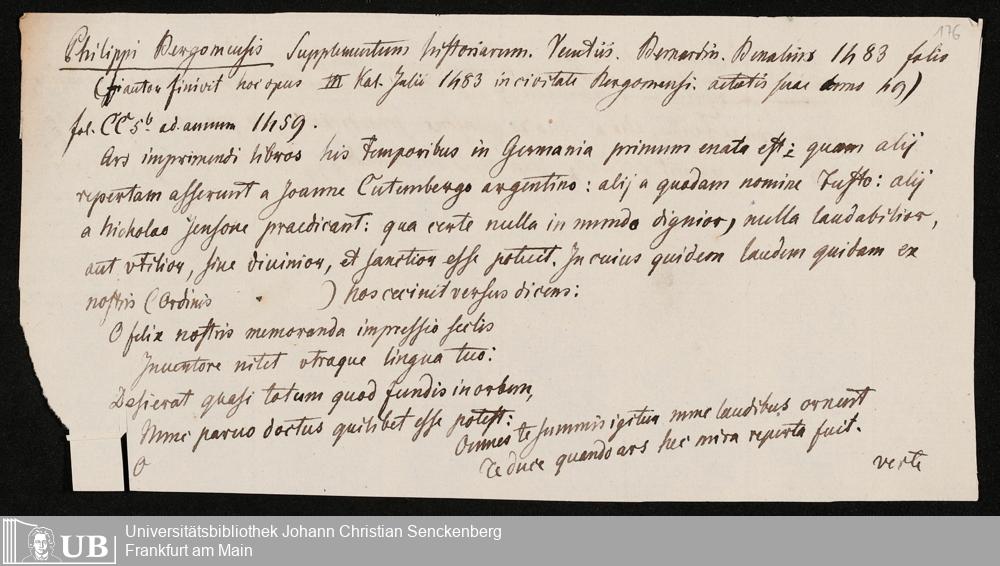 176
Philippi Bergomensis Supplementum historiarum. Venetiis. Bernardin. Benalius 1483 folio
(fi autor finivit hoc opus III Kal. Julii 1483 in civitate Bergomensi. aetatis suae anno 49)
fol. CCr 5b ad annum 1459.
Ars imprimendi libros his temporibus in Germania primum enata est: quam alij
repertam asserunt a Joanne Cutembergo argentino: alij a quodam nomine Fusto: alij
a Nicholao Jensone praedicant: qua certe nulla in mundo dignior, nulla laudabilior,
aut vtilior, sive divinior, et sanctior esse potuit. In cuius quidem laudem quidam ex
nostris (Ordinis ) hos cecinit versus dicens:
O felix nostris memoranda impressio seclis
Inventore nitet vtraque lingua tuo:
Desierat quasi totum quod fundis in orbem,
Nunc parvo doctus quilibet esse potest:
Omnes te summis igitur nunc laudibus ornent
Te duce quando ars hec mira reperta fuit.
O
verte
Universitätsbibliothek Johann Christian Senckenberg
Frankfurt am Main
UB